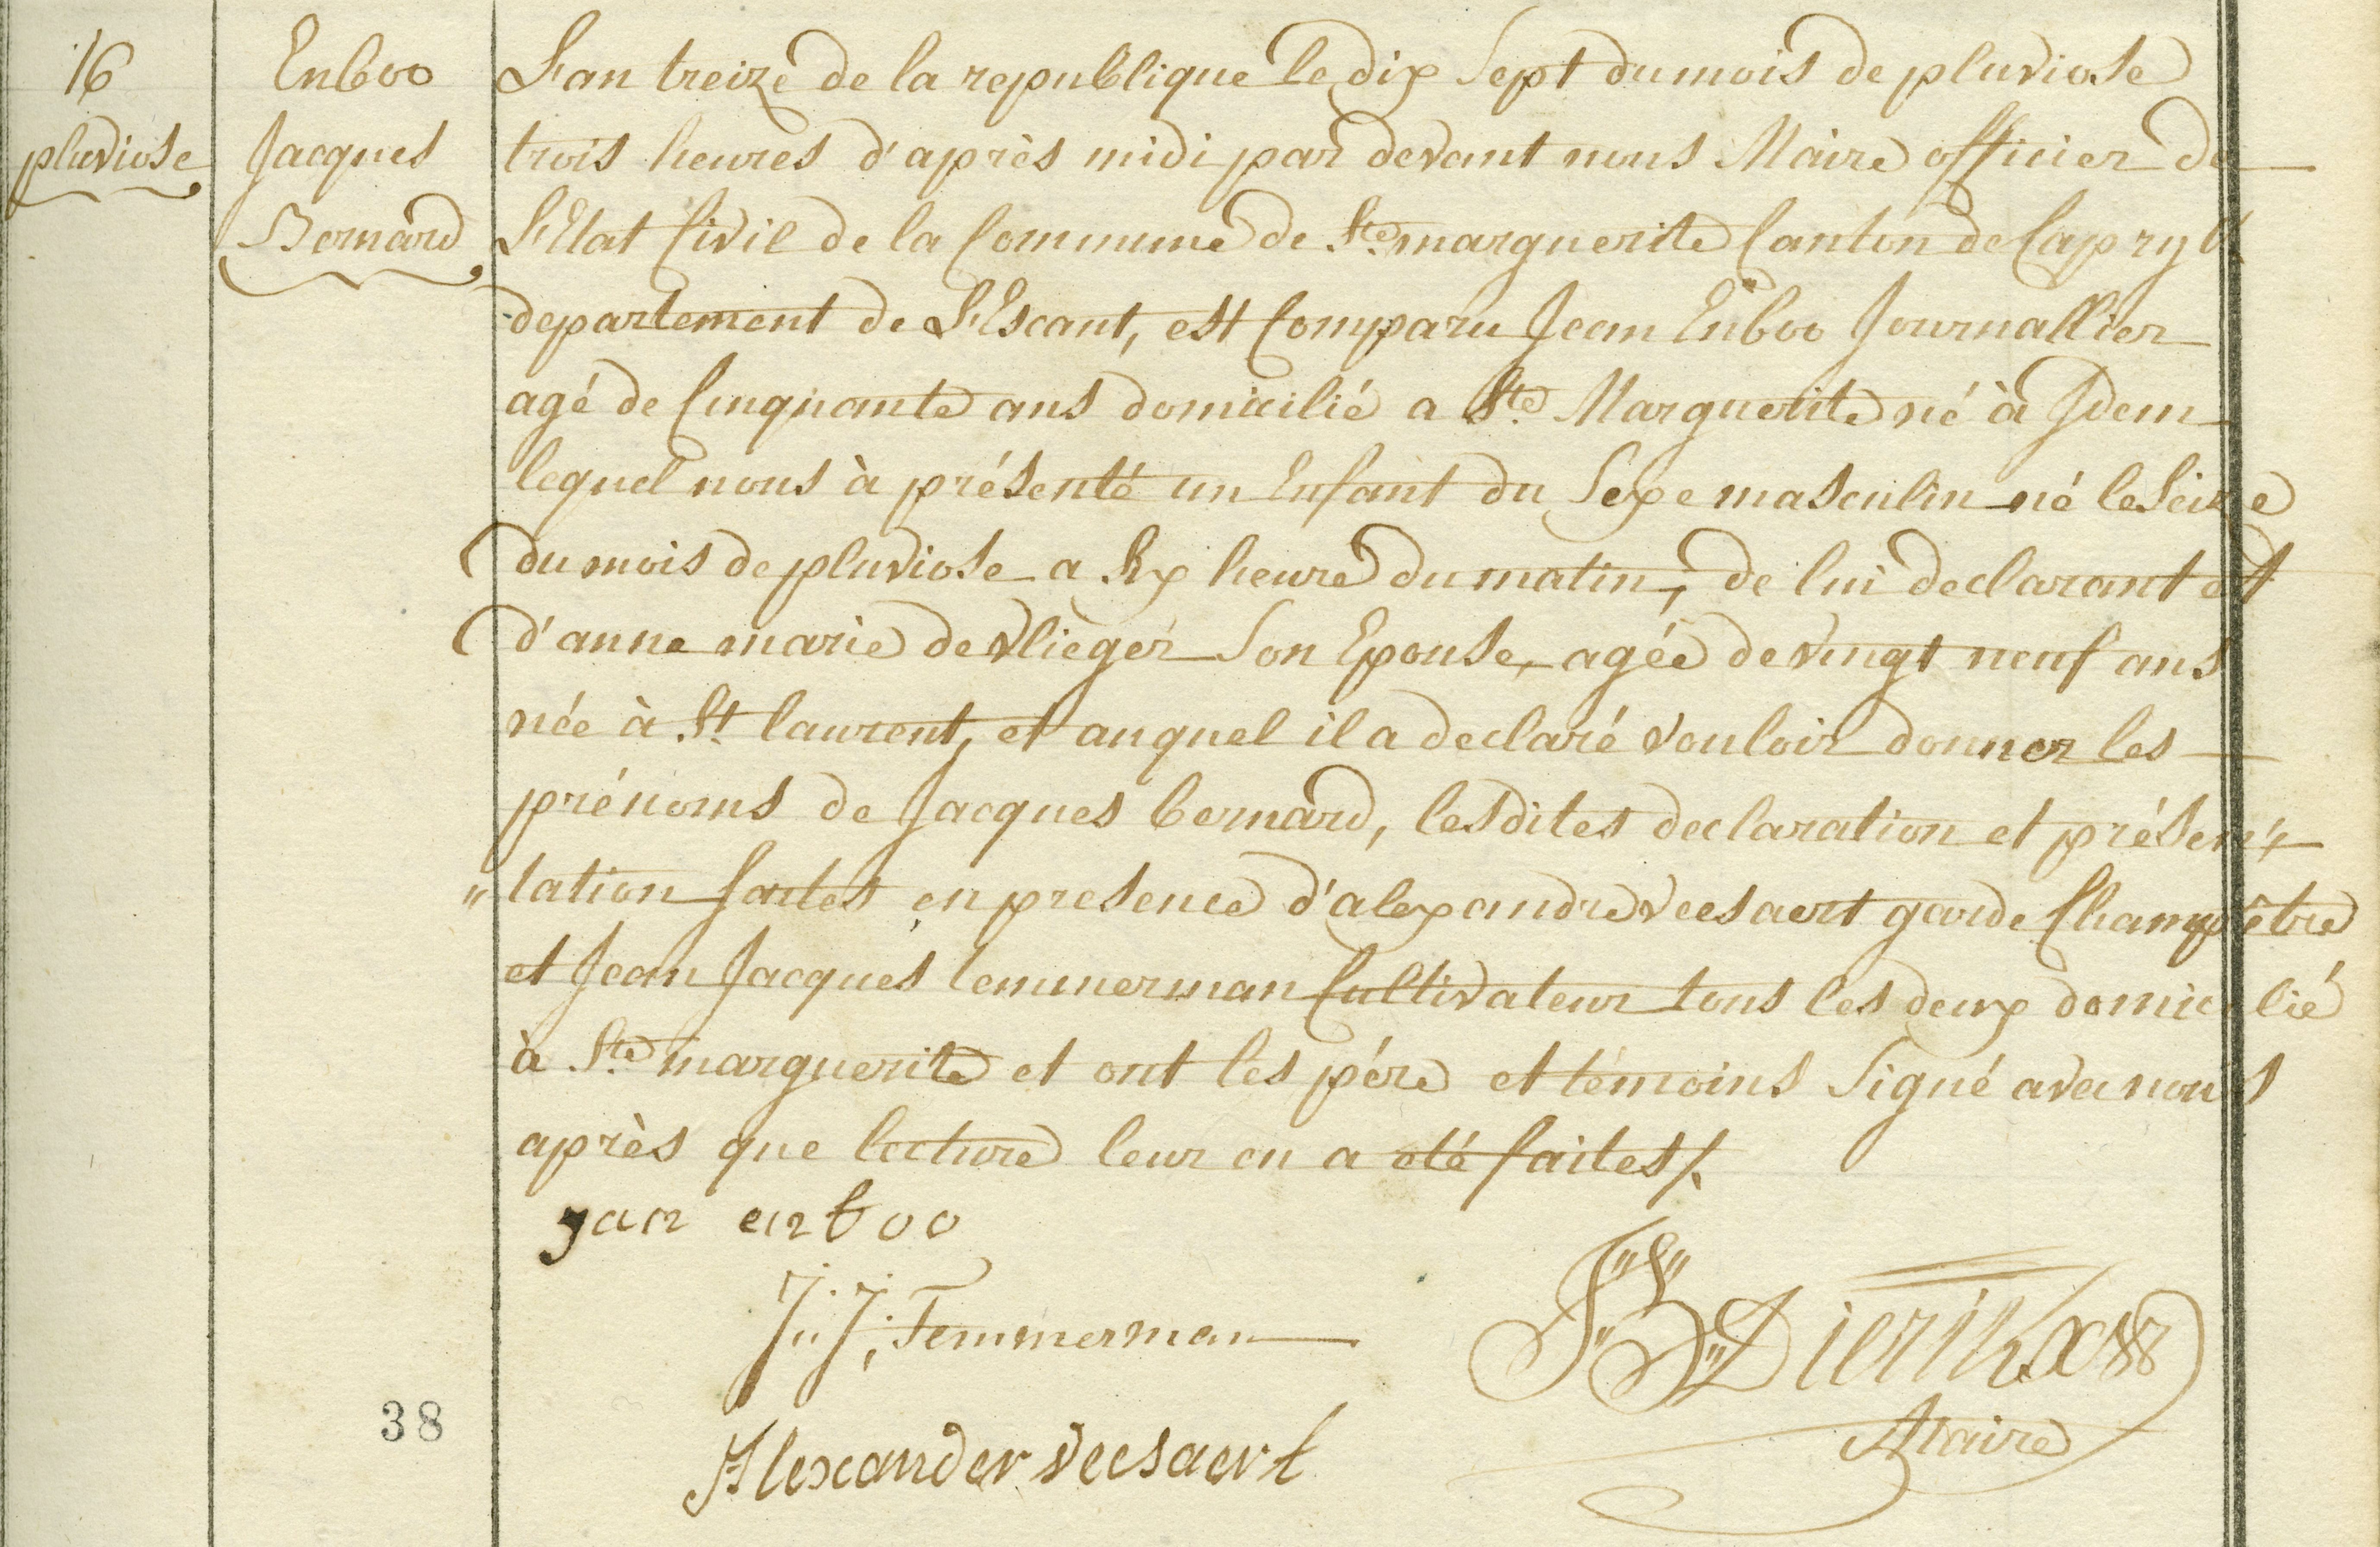 16
pluviose
Enboo
Jacques
Bernard
L'an treize de la republique le dix sept du mois de pluviose
trois heures d'après midi par devant nous Maire officier de
L'Etat Civil de la Commune de Ste marguerite Canton de Capryk
departement de L'Escaut, est Comparu Jean Enboo Journallier
agé de Cinquante ans domicilié a Ste Marguerite né à Idem
lequel nous à présenté un Enfant du Sexe masculin né le Seize
du mois de pluviose a Six heure du matin, de lui declarant et
d'anne marie de vlieger Son Epouse, agée de vingt neuf ans
née à St laurent, et auquel il a declaré vouloir donner les
prénoms de Jacques bernard, lesdites declaration et présen"
"tation faites en presence d'alexandre veesaert garde Champêtre
et Jean Jacques temmerman Cultivateur tous les deux domicilié
à Ste marguerite et ont les pére et témoins Signé avec nous
après que lecture leur en a été faites/.
jan enboo
J: J: Temmerman
Dierikx
Maire
Alexander veesaert
38